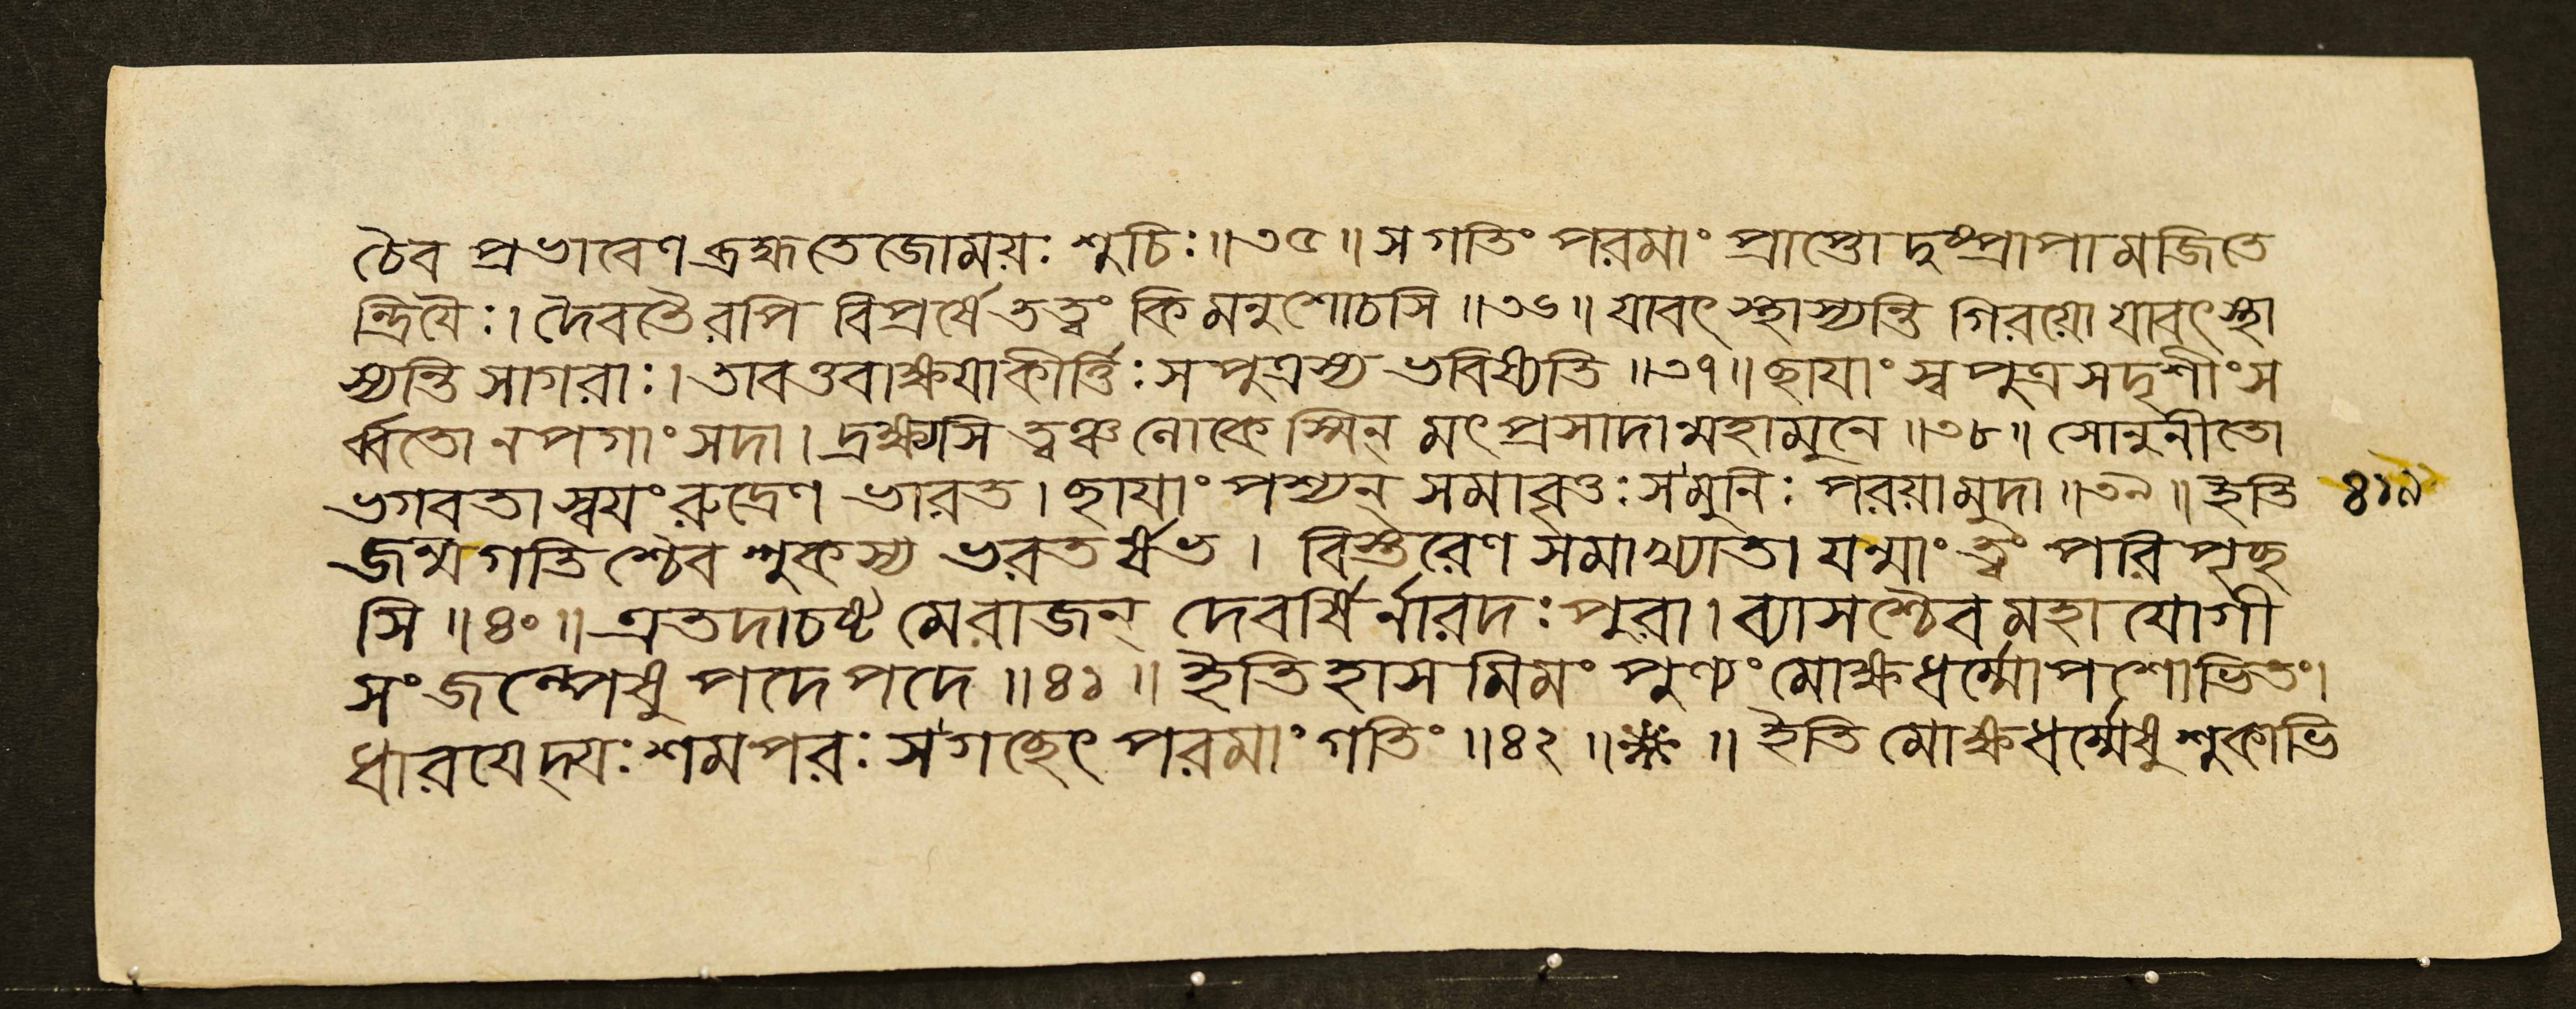 চৈব প্রভাবেণ ব্রহ্মতেজোময়ঃ শুচিঃ॥৩৫॥ স গতিং পরমাং প্রাপ্তো দুষ্প্রাপামজিতে
ন্দ্রিয়ৈঃ। দৈবতৈরপি বিপ্রর্ষে তত্ত্বং কিমনুশোচসি॥৩৬॥ যাবৎ স্থাস্যন্তি গিরয়ো যাবৎ স্থা
স্যন্তি সাগরাঃ। তাবত্তবাক্ষয়া কীর্ত্তিঃ সপুত্রস্য ভবিষ্যতি॥৩৭॥ ছায়াং স্বপুত্রসদৃশীং স
র্ব্বতো নপগাং সদা। দ্রক্ষ্যসি ত্বঞ্চ লোকেস্মিন্ মৎপ্রসাদান্মহামুনে॥৩৮॥ সোনুনীতো
ভগবতা স্বয়ং রুদ্রেণ ভারত। ছায়াং পশ্যন্ সমাবৃত্তঃ স মুনিঃ পরয়া মুদা॥৩৯॥ ইতি ৪১৯
জন্ম গতিশ্চৈব শুকস্য ভরতর্ষভ। বিস্তরেণ সমাখ্যাতা যন্মাং ত্বং পরিপৃছ
সি॥৪০॥ এতদাচষ্ট মে রাজন্ দেবর্ষির্নারদঃ পুরা। ব্যাসশ্চৈব মহাযোগী
সংজল্পেষু পদে পদে॥৪১॥ ইতিহাসমিমং পুণ্যং মোক্ষধর্ম্মোপশোভিতং।
ধারয়েদ্যঃ শমপরঃ স গচ্ছেৎ পরমাং গতিং॥৪২॥ ॥ ইতি মোক্ষধর্ম্মেষু শুকাভি